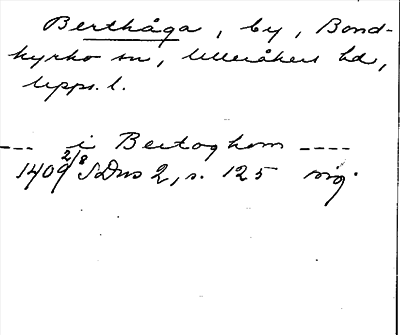 Berthåga, by, Bond-
kyrko sn, Ulleråkers hd,
Upps. l.
--- i Bertoghom ----
1409 2/8 SDns 2, s. 125 orig.